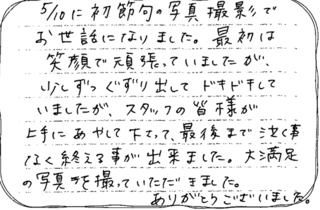 5/10に初節句の写真撮影で
お世話になりました。最初は
笑顔で頑張っていましたが、
少しずつぐずり出してドキドキして
いましたが、スタッフの皆様が
上手にあやして下さって、最後まで泣く事
なく終える事が出来ました。大満足
の写真を撮っていただきました。
ありがとうございました。